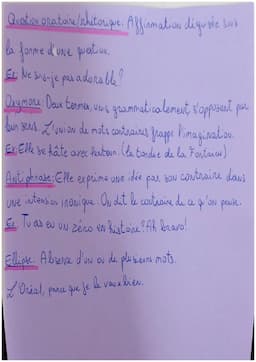 Question oratoire/rhétorique: Affirmation déguisée sous
la forme d'une question.
Ex: Ne suis-je pas adorable?
Oxymore: Deux termes, unis grammaticalement, s'opposent par
leur sens. L'union de mots contraires frappe l'imagination.
Ex: Elle se hâte avec lenteur (la tortue de la Fontaine)
Antiphrase: Elle exprime une idée par son contraire dans
une intention ironique. On dit le contraire de ce qu'on pense.
Ex: Tu as eu un zéro en histoire? Ah bravo!
Ellipse: Absence d'un ou de plusieurs mots.
L'Oréal, parce que je le vaux bien.